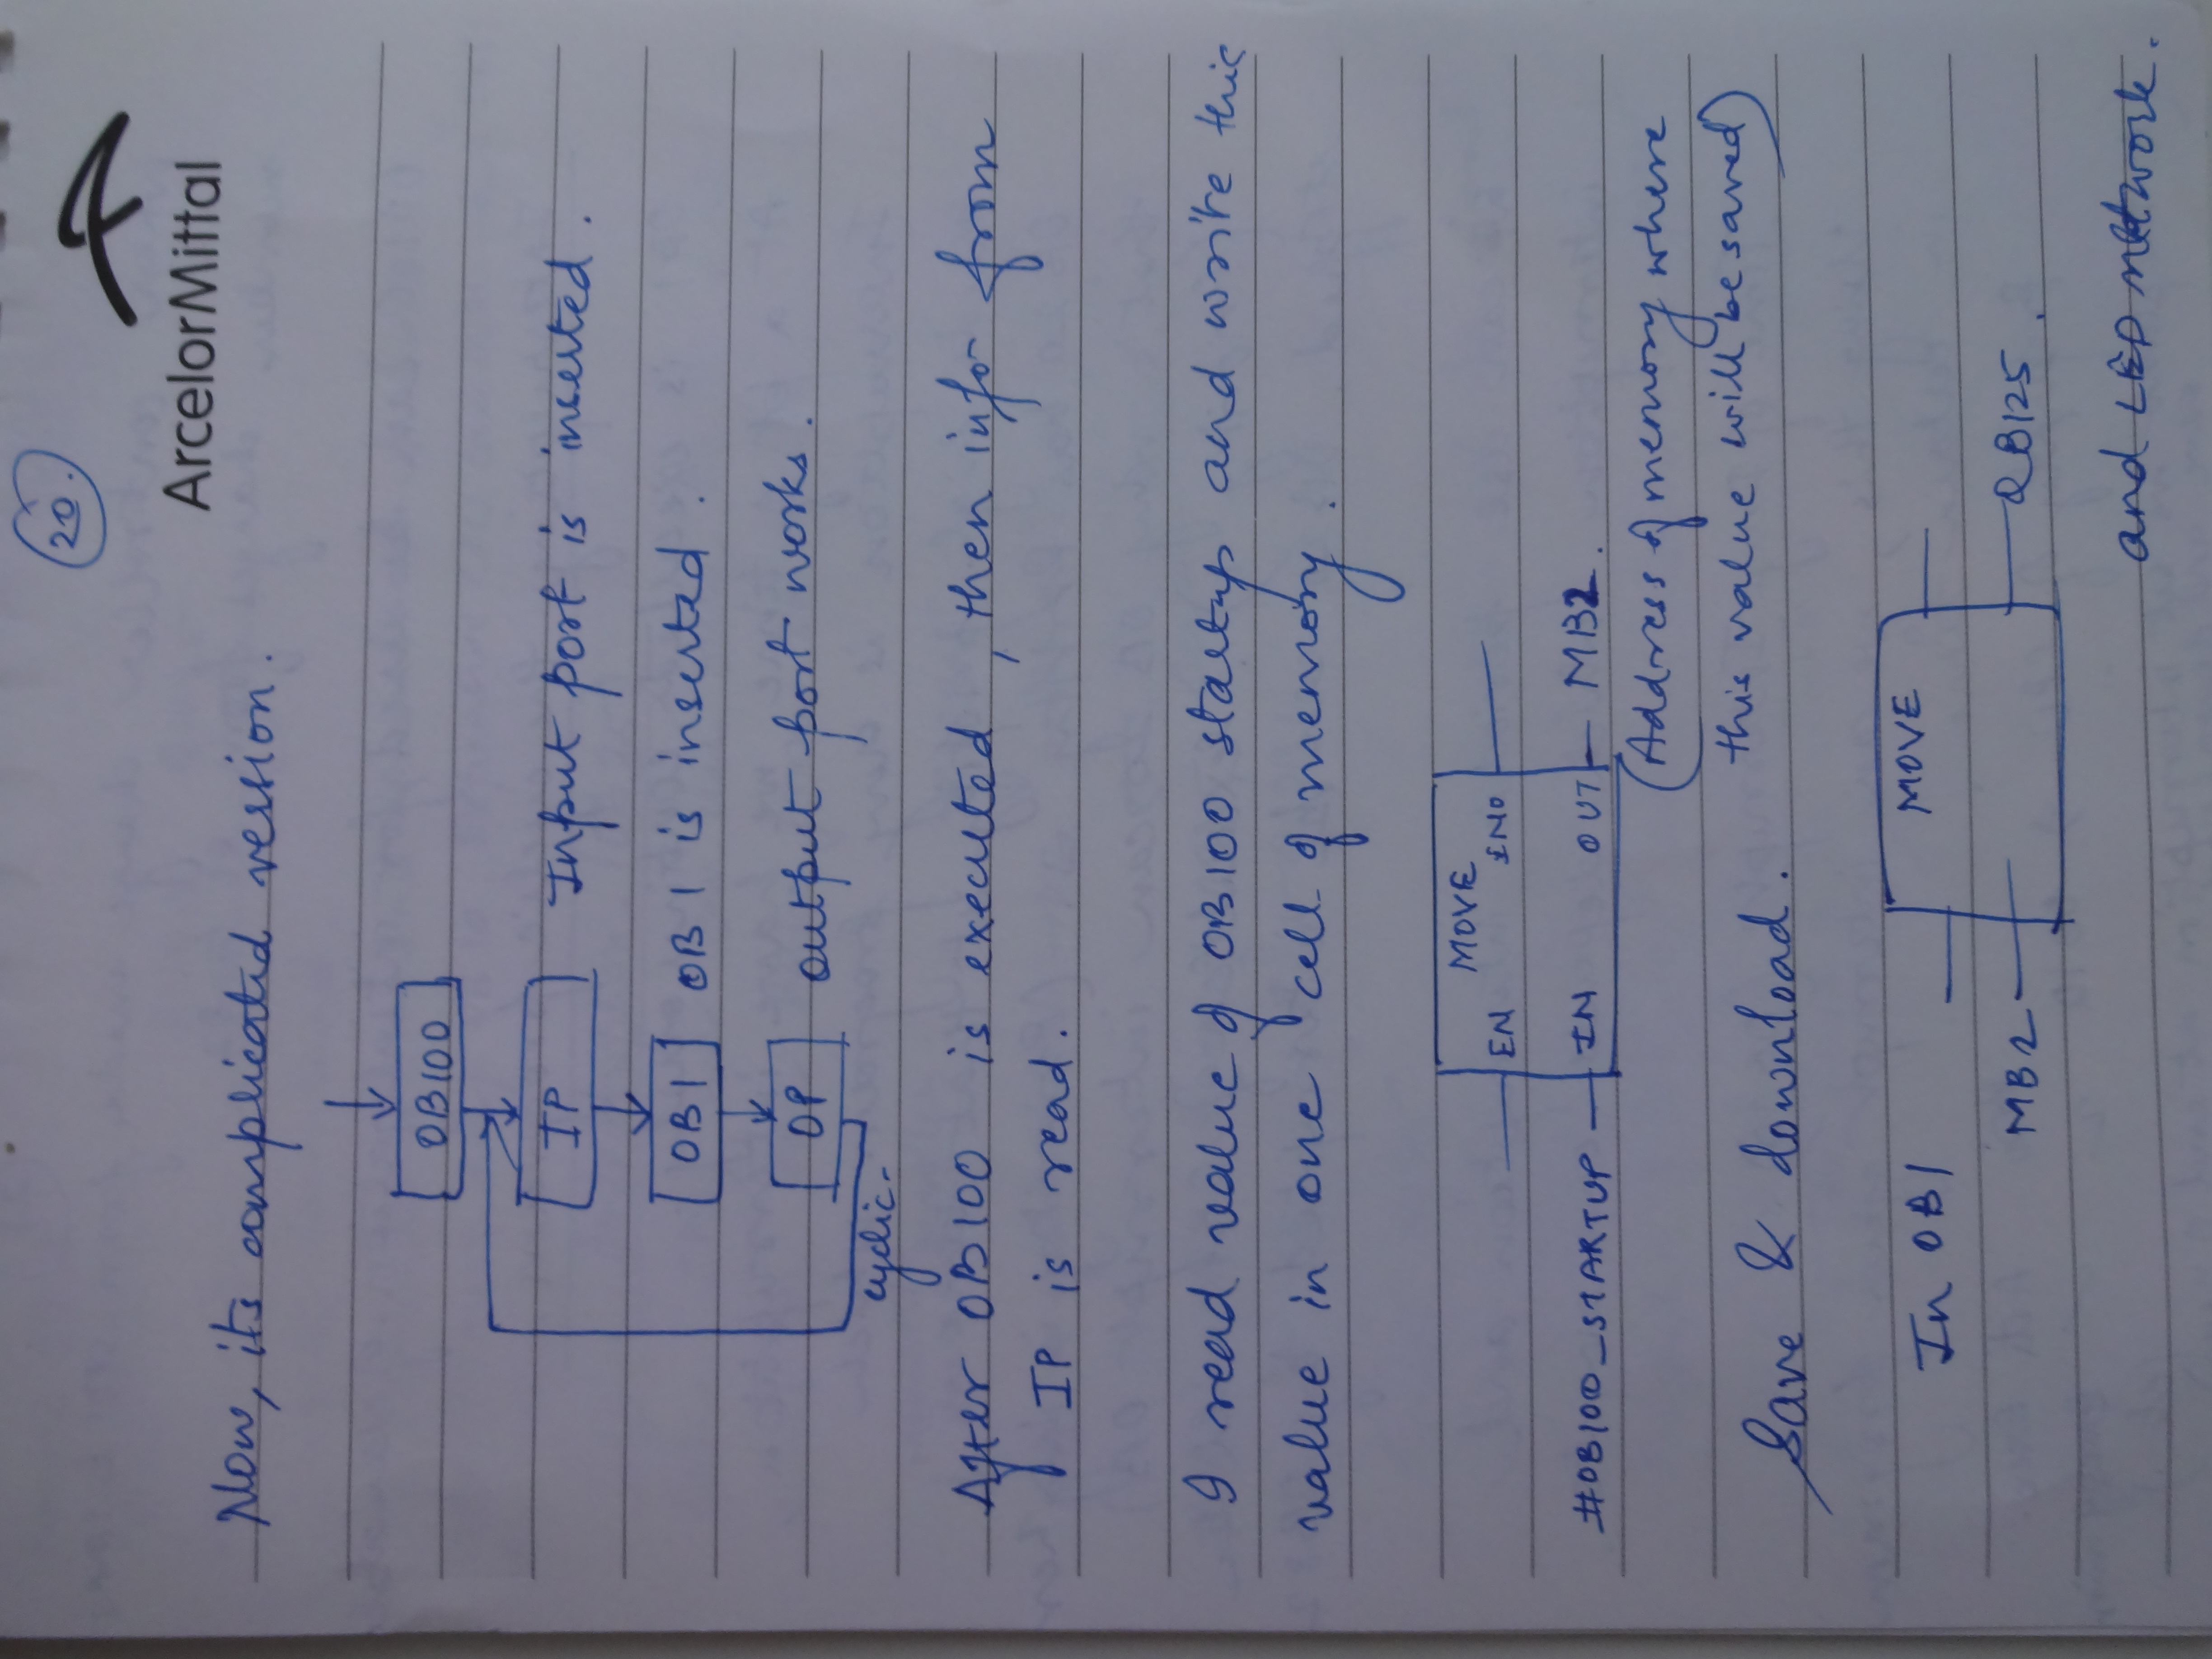 20.
ArcelorMittal
Now, its complicated version.
OB100
IP Input port is inserted.
OB1 OB1 is inserted.
OP output port works.
cyclic.
After OB100 is executed, then info from
IP is read.
I read value of OB100 startup and write this
value in one cell of memory.
MOVE
EN ENO
#OB100_STARTUP IN OUT MB2.
(Address of memory where
this value will be saved)
Save & download.
In OB1 MOVE
MB2 QB125.
and LED network.